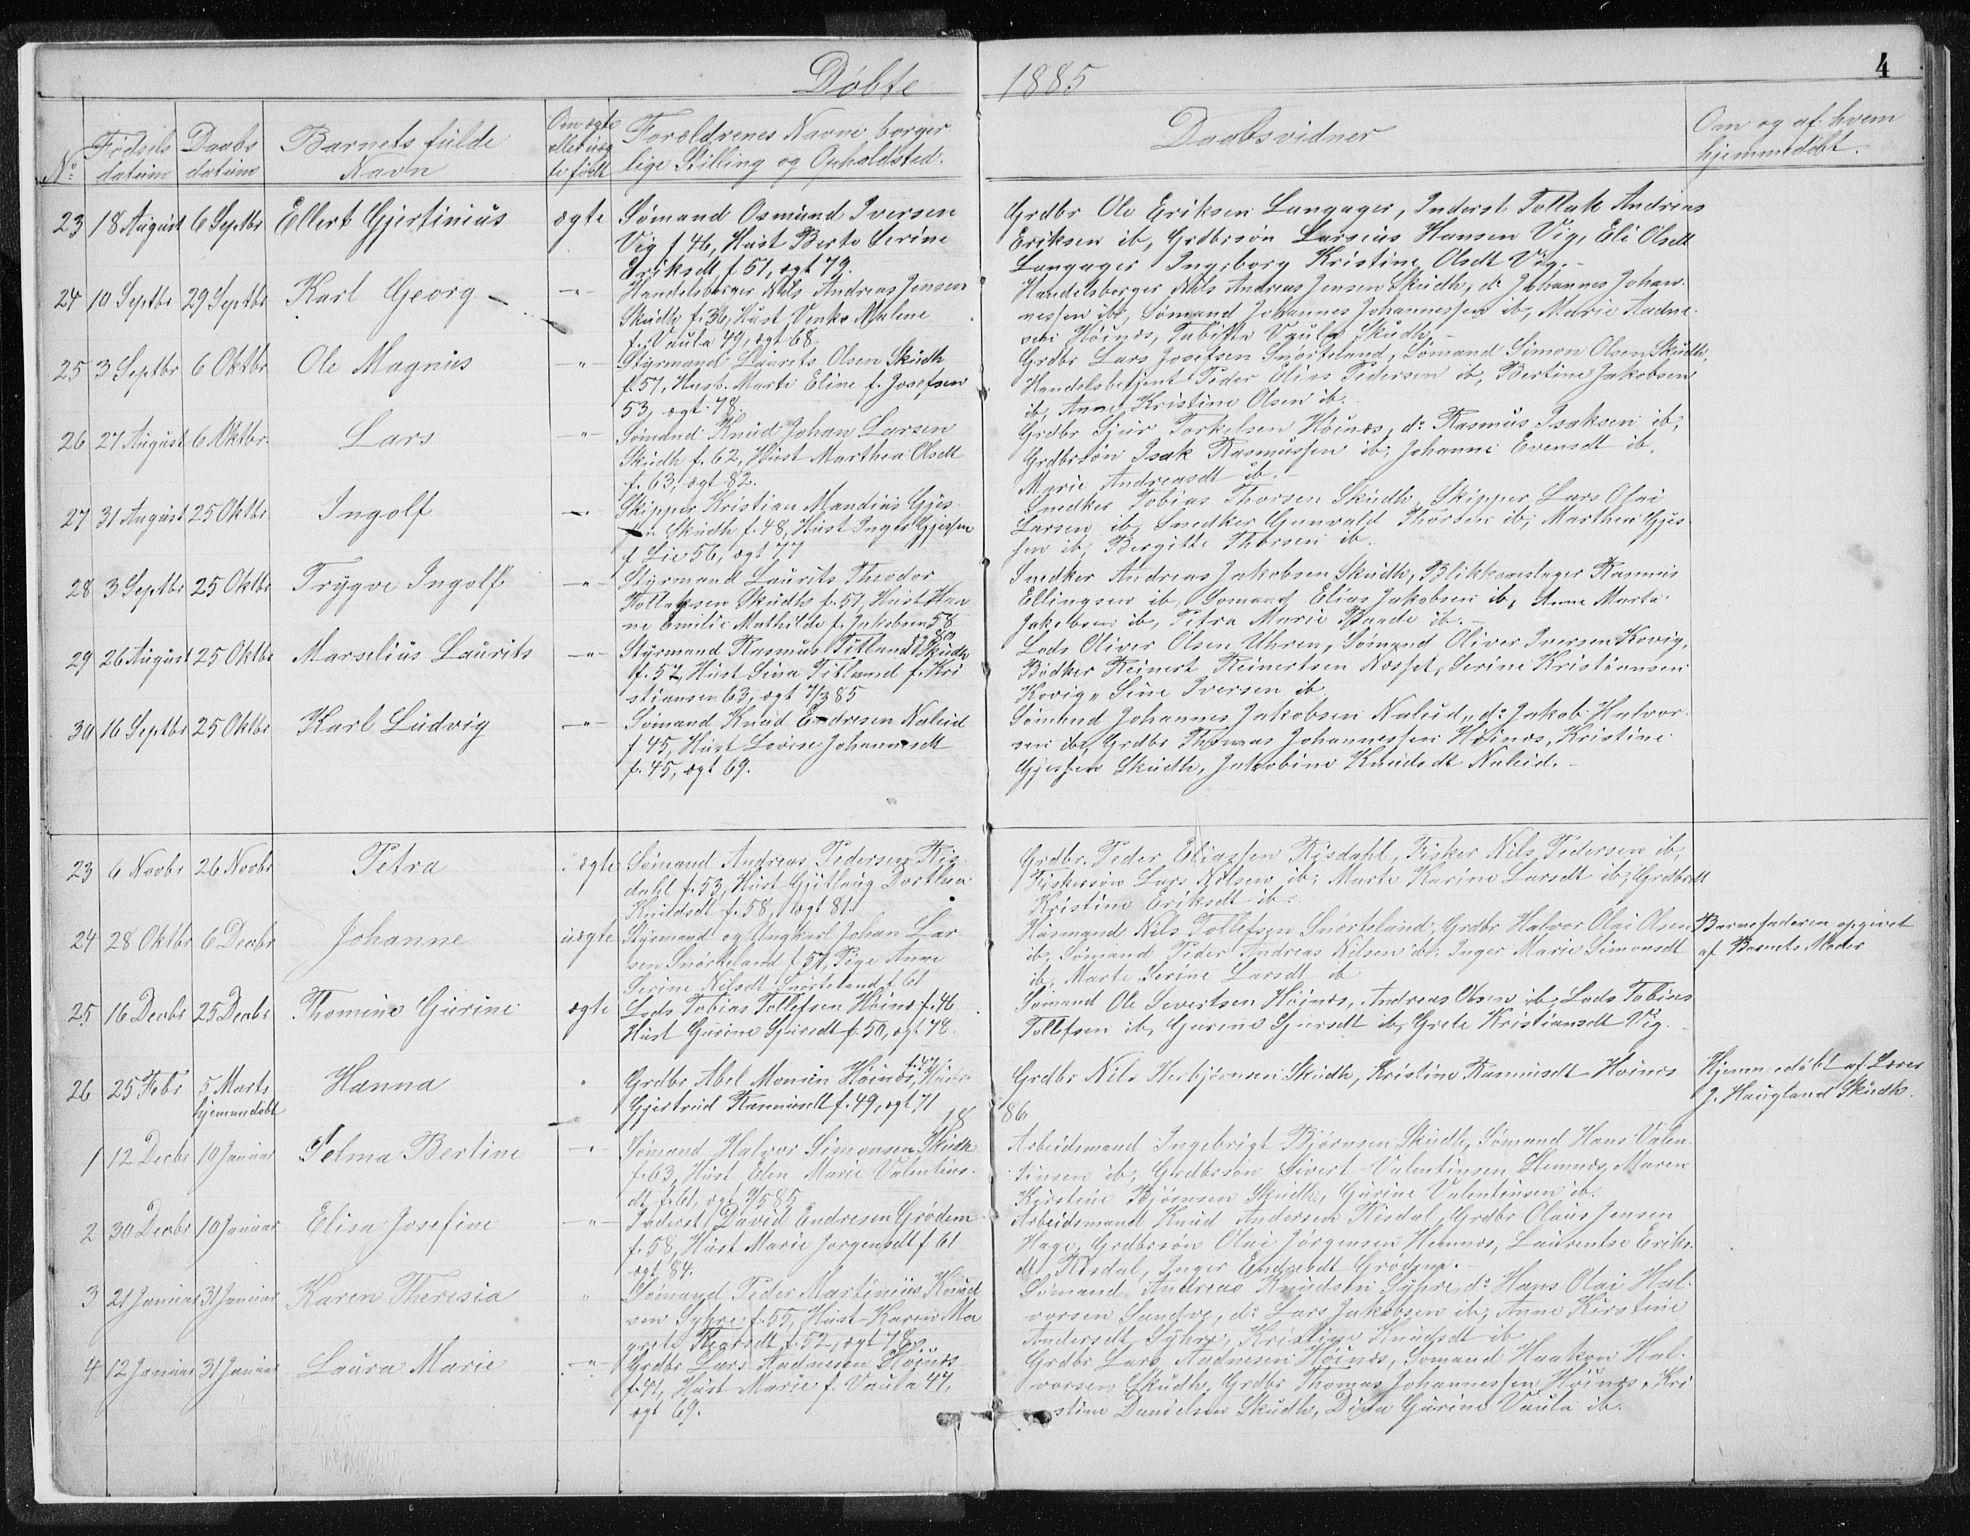 Døbte 1885
4
No
Fødsels datum
Daabs datum
Barnets fulde Navn
Om ægte eller uæg te født
Forældrenes Navne borger lige Stilling og Opholdsted.
Daabsvidner
Om og af hvem hjemmedøbt.
23 18 August 6 Septbr Ellert Gjertinius ægte
Sømand Osmund Iversen
Vig f 46, Hust Berte Serine
Eriksdt f. 51, ægt 79.
Grdbr Ole Eriksen Langager, Inderst Tollak Andreas
Eriksen ib, Grdbrsøn Larsius Hansen Vig, Eli Olsdt
Langager Ingeborg Kristine Olsdt Vig.-
24 10 Septbr 29 Septbr Karl Georg - -"-
Handelsborger Nils Andreas Jensen
Skudh f. 36, Hust Venke Malene
f. Vaula 49, ægt 68.
Handelsborger Nils Andreas Jensen Skudh, do Johannes Johan-
nessen ib, Sømand Johannes Johannessen ib, Marie Aadne-
sen Høinæs, Tabitha Vaula Skudh,-
25 3 Septbr 6 Oktbr Ole Magnus -"-
Styrmand Laurits Olsen Skudh
f. 51, Hust. Marte Eline f. Josefsen
53, ægt. 78.
Grdbr Lars Josefsen Snørteland, Sømand Simon Olsen Skudh,
Handelsbetjent Peder Elias Pedersen ib, Bertine Jakobsen
ib, Anne Kristine Olsen ib.
26 27 August 6 Oktbr. Lars -"-
Sømand Knud Johan Larsen
Skudh f. 62, Hust Marthea Olsdt
f. 63, ægt 82.
Grdbr Sjur Torkelsen Høinæs, do Rasmus Isaksen ib,
Grdbrsøn Isak Rasmussen ib, Johanne Evensdt ib,
Marie Andreasdt ib.-
27 31 August 25 Oktbr Ingolf -"-
Skipper Kristian Mandius Gjes-
sen Skudh f. 48, Hust Inger Gjessen
f Lie 56, ægt 77
Snedker Tobias Thorsen Skudh, Skipper Lars Olai
Larsen ib, Snedker Gunvald Thorsen ib, Marthea Gjes
sen ib, Bergitte Thorsen ib.
28 3 Septbr 25 Oktbr Trygve Ingolf -"-
Styrmand Laurits Theodor
Tollaksen Skudh f. 51, Hust Han
ne Emilie Mathilde f. Jakobsen 58
Snedker Andreas Jakobsen Skudh, Blikkenslager Rasmus
Ellingsen ib, Sømand Elias Jakobsen ib, Anne Marta
Jakobsen ib, Petra Marie Baade ib.-
29 26 August 25 Oktbr Marselius Laurits -"-
Styrmand Rasmus Titland Skudh
f. 57, Hust Sina Titland f. Kri
stiansen 63, ægt 7/3 85
Lods Oliver Olsen Uhren, Sømand Oliver Iversen Kovig,
Bødker Reinert Reinertsen Næsset, Serine Kristiansen
Kovig, Sine Iversen ib
30 16 Septbr 25 Oktbr Karl Ludvig -"-
Sømand Knud Endresen Naleid
f 45, Hust Lovise Johannesdt
f. 45, ægt 69.
Sømand Johannes Jakobsen Naleid, do Jakob Halvor-
sen ib, Grdbr Thomas Johannessen Høinæs, Kristine
Gjessen Skudh, Jakobine Knudsdt Naleid.-
23 6 Novbr 26 Novbr Petra ægte
Sømand Andreas Pedersen Ris
dahl f. 53, Hust Gjutlaug Dorthea
Knudsdt f. 58, ægt 81.
Grdbr. Peder Eliassen Risdahl, Fisker Nils Pedersen ib,
Fiskersøn Lars Nilsen ib, Marte Karine Larsdt ib,
Kristine Eriksdt ib.
24 28 Oktbr 6 Decbr Johanne uægte
Styrmand og Ungkarl Johan Lar
sen Snørteland f 57, Pige Anne
Serine Nilsdt Snørteland f. 61
Husmand Nils Tollefsen Snørteland, Grdbr Halvor Olai Olsen
ib, Sømand Peder Andreas Nilsen ib, Inger Marie Simonsdt
ib, Marte Serine Larsdt ib
Barnefaderen opgivet
af Barnets Moder
25 16 Decbr 25 Decbr Thomine Gurine ægte
Lods Tobias Tollefsen Høinæs f. 46
Hust Gurine Sjursdt f. 50, ægt 78.
Sømand Ole Severtsen Høinæs, Andreas Olsen ib, Lods Tobias
Tollefsen ib, Gurine Sjursdt ib, Grete Kristiansdt Vig.
26 25 Febr 5 Marts hjemmedøbt Hanna "
Grdbr Abel Monsen Høinæs, f. 47, Hust
Gjertrud Rasmusdt f. 49, ægt 71
Grdbr Nils Herbjørnsen Skudh, Kristine Rasmusdt Høinæs
Hjemmedøbt af Lærer
J. Haugland Skudh.
1886
1 12 Decbr 10 Januar Selma Bertine -"-
Sømand Halvor Simonsen Skudh
f. 63, Hust Elen Marie Valentins-
dt f. 61, ægt 7/5 85
Arbeidsmand Ingebrigt Bjørnsen Skudh, Sømand Hans Valen-
tinsen ib, Grdbrsøn Sivert Valentinsen Hemnæs, Maren
Kirstine Bjørnsen Skudh, Gurine Valentinsen ib.
2 30 Decbr 10 Januar Elisa Josefine -"-
Inderst David Endresen Grødem
f. 58, Hust Marie Jørgensdt f 61
ægt 84.
Arbeidsmand Knud Andersen Risdal, Grdbr Olaus Jensen
Hage, Grdbrsøn Olai Jørgensen Hemnæs, Laurentse Eriks-
dt Risdal, Inger Endresdt Grødem.-
3 21 Januar 31 Januar Karen Theresia "
Sømand Peder Martinius Knud
sen Syhre f. 55, Hust Karen Ma
grete f. 52, ægt 78,
Sømand Andreas Knudsen Syhre, do Hans Olai Hal-
vorsen Sandve, do Lars Jakobsen ib, Anne Kirstine
Andersdt Syhre, Kristine Knudsdt ib
4 12 Januar 31 Januar Laura Marie -"-
Grdbr Lars Aadnesen Høinæs
f. 41, Hust Marie f. Vaula 47,
ægt 69.
Grdbr Lars Aadnesen Høinæs, Sømand Haakon Hal-
vorsen Skudh, Grdbr Thomas Johannessen Høinæs, Kri
stine Danielsen Skudh, Dina Gurine Vaula ib.